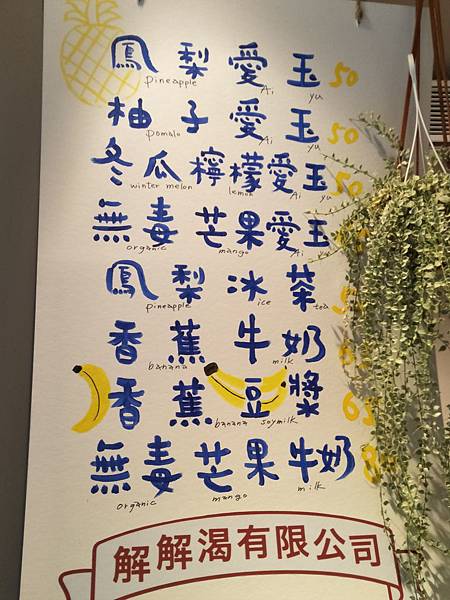 鳳梨愛玉 50
pineapple Ai yu
柚子愛玉 50
pomalo Ai yu
冬瓜檸檬愛玉 50
winter melon lemon Ai yu
無毒芒果愛玉
organic mango Ai yu
鳳梨冰茶
pineapple ice tea
香蕉牛奶
banana milk
香蕉豆漿
banana soymilk
無毒芒果牛奶
organic mango milk
解解渴有限公司